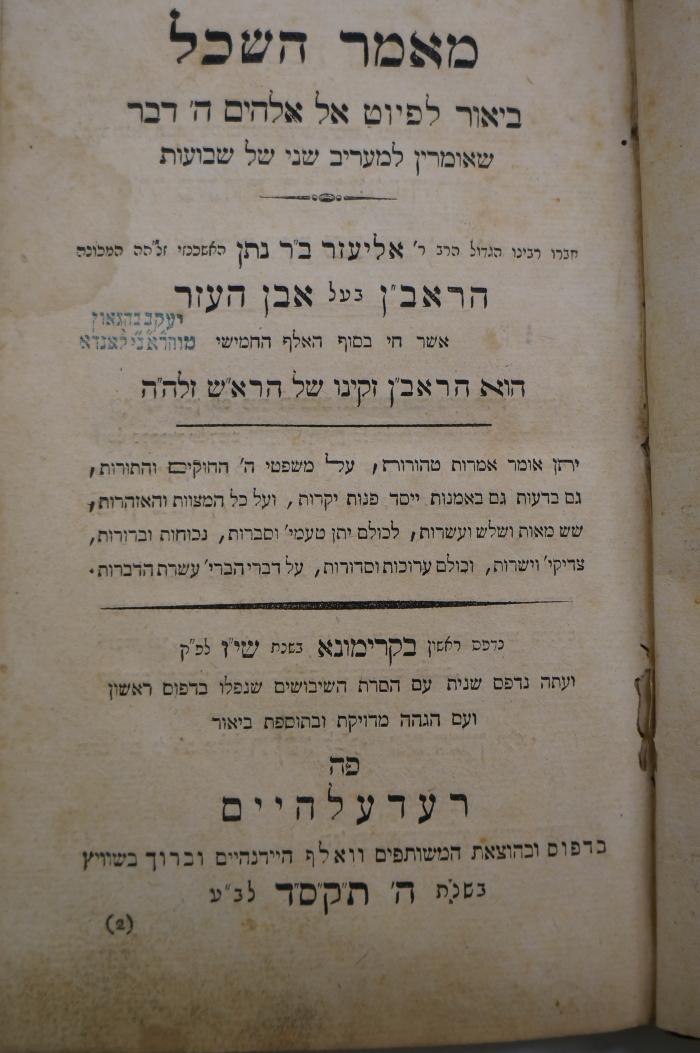 מאמר השכל
ביאור לפיוט אל אלהים ה' דבר
שאומרין למעריב שני של שבועות
חברו רבינו הגדול הרב ר' אליעזר ב"ר נתן האשכנזי זל"הה המכונה
הראב"ן בעל אבן העזר
יעקב בהגאון
אשר חי בסוף האלף החמישי
מוהר"א בי"ל אנדא
הוא הראב"ן זקינו של הרא"ש זלה"ה
יתן אומר אמרות טהורות, על משפטי ה' החוקים והתורות,
גם בדעות גם באמנות ייסד פנות יקרות, ועל כל המצוות והאזהרות,
שש מאות ושלש ועשרות, לכולם יתן טעמי' וסברות, נכוחות וברורות,
צדיקי' וישרות, וכולם ערוכות וסדורות, על דברי הברי' עשרת הדברות.
נדפס ראשון בקרימונא בשנת שי"ז לפ"ק
ועתה נדפס שנית עם הסרת השיבושים שנפלו בדפוס ראשון
ועם הגהה מדויקת ובתוספת ביאור
פה
רעדעלהיים
בדפוס ובהוצאת המשותפים וואלף היידנהיים וברוך בשוויץ
בשנת ה' תקס"ד לב"ע
(2)